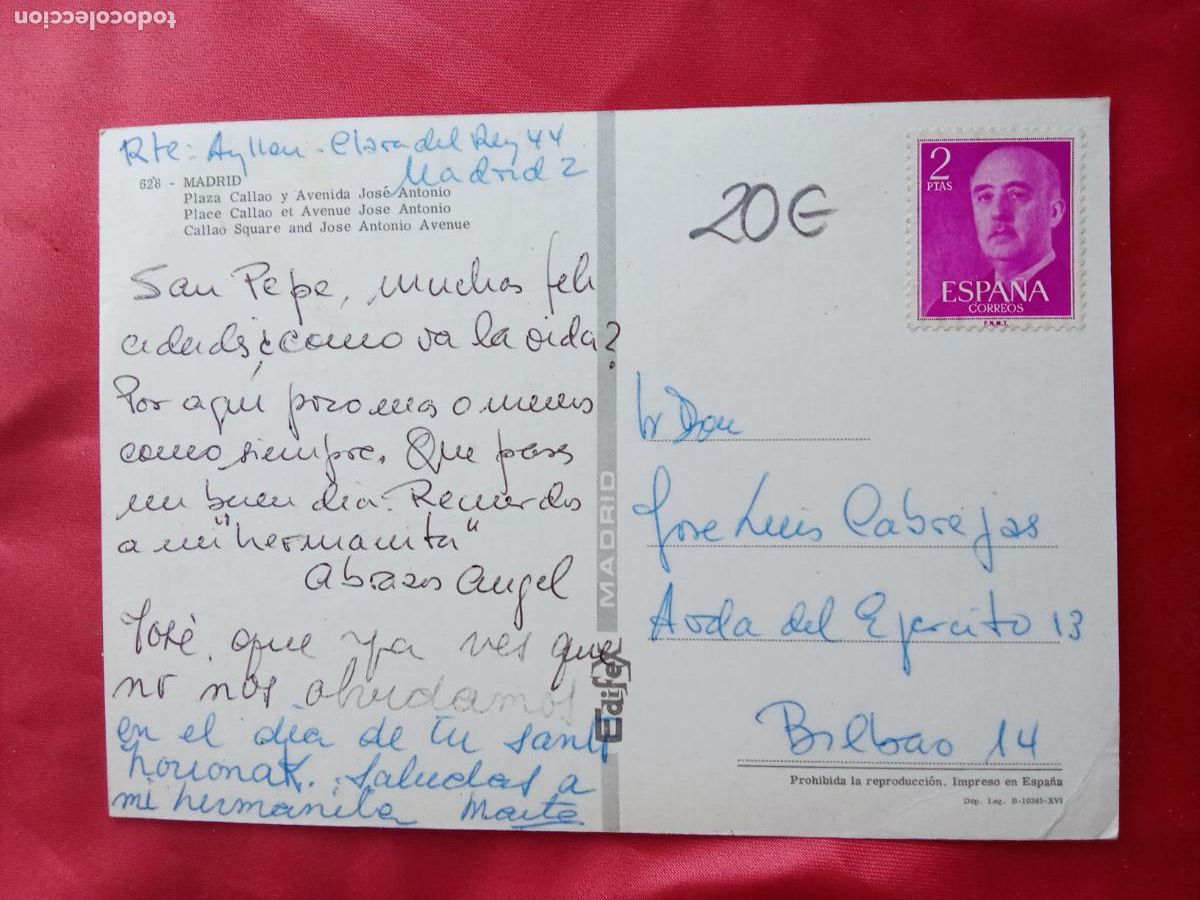 todocoleccion
Rte: Ayllon - Clara del Rey 44
Madrid 2
628 - MADRID
Plaza Callao y Avenida José Antonio
Place Callao et Avenue Jose Antonio
Callao Square and Jose Antonio Avenue
San Pepe, muchas feli
cidades ¿como va la vida?
Por aqui poco mas o menos
como siempre. Que pases
un buen dia. Recuerdos
a mi "hermanita"
Abrazos Angel
José, que ya ves que
no nos olvidamos
en el dia de tu santo
Saludos a
mi hermanita
MADRID
Edifex
20€
2
PTAS
ESPAÑA
CORREOS
F.N.M.T.
Sr Don
Jose Luis Cabrejas
Avda del Ejercito 13
Bilbao 14
Prohibida la reproducción. Impreso en España
Dep. Leg. B-10345-XVI